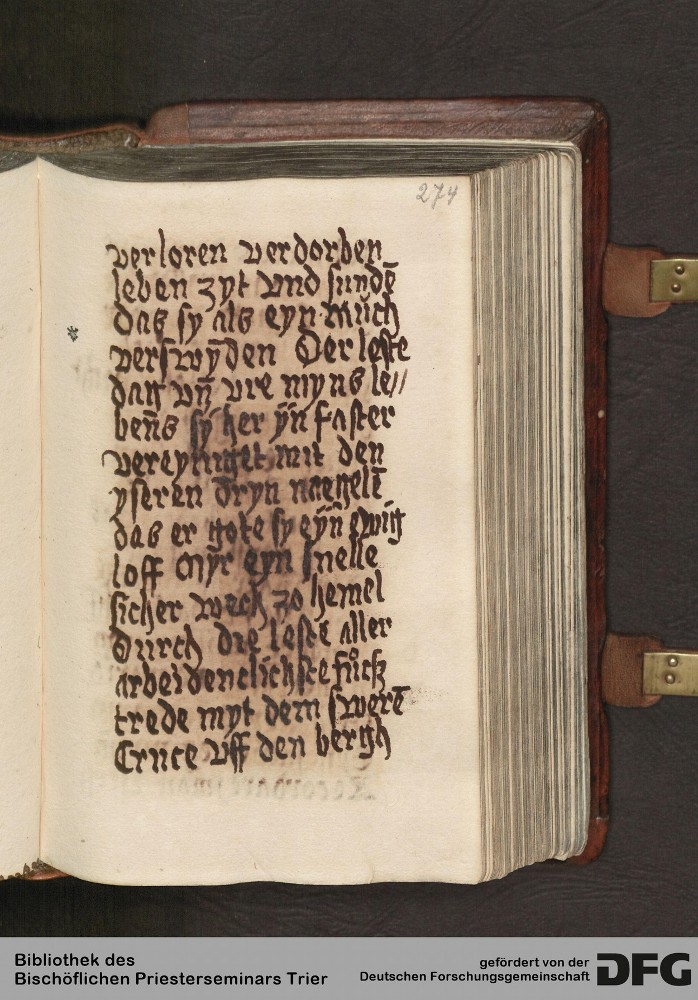 274
verloren verdorben
leben zyt vnd sundē
das sy als eyn můch
verswÿden Der leste
dag vn̄ vre myns le//
ben̄s sy her ÿn faster
vereyniget mit den
yseren dryn negelē
das er gote sy eÿn ewig
loff Mÿr eyn snelle
sicher wech zo hemel
Durch die leste aller
arbeidenclichste fůcß
trede myt dem swerē
Cruce vff den bergh
Bibliothek des
Bischöflichen Priesterseminars Trier
gefördert von der
Deutschen Forschungsgemeinschaft
DFG